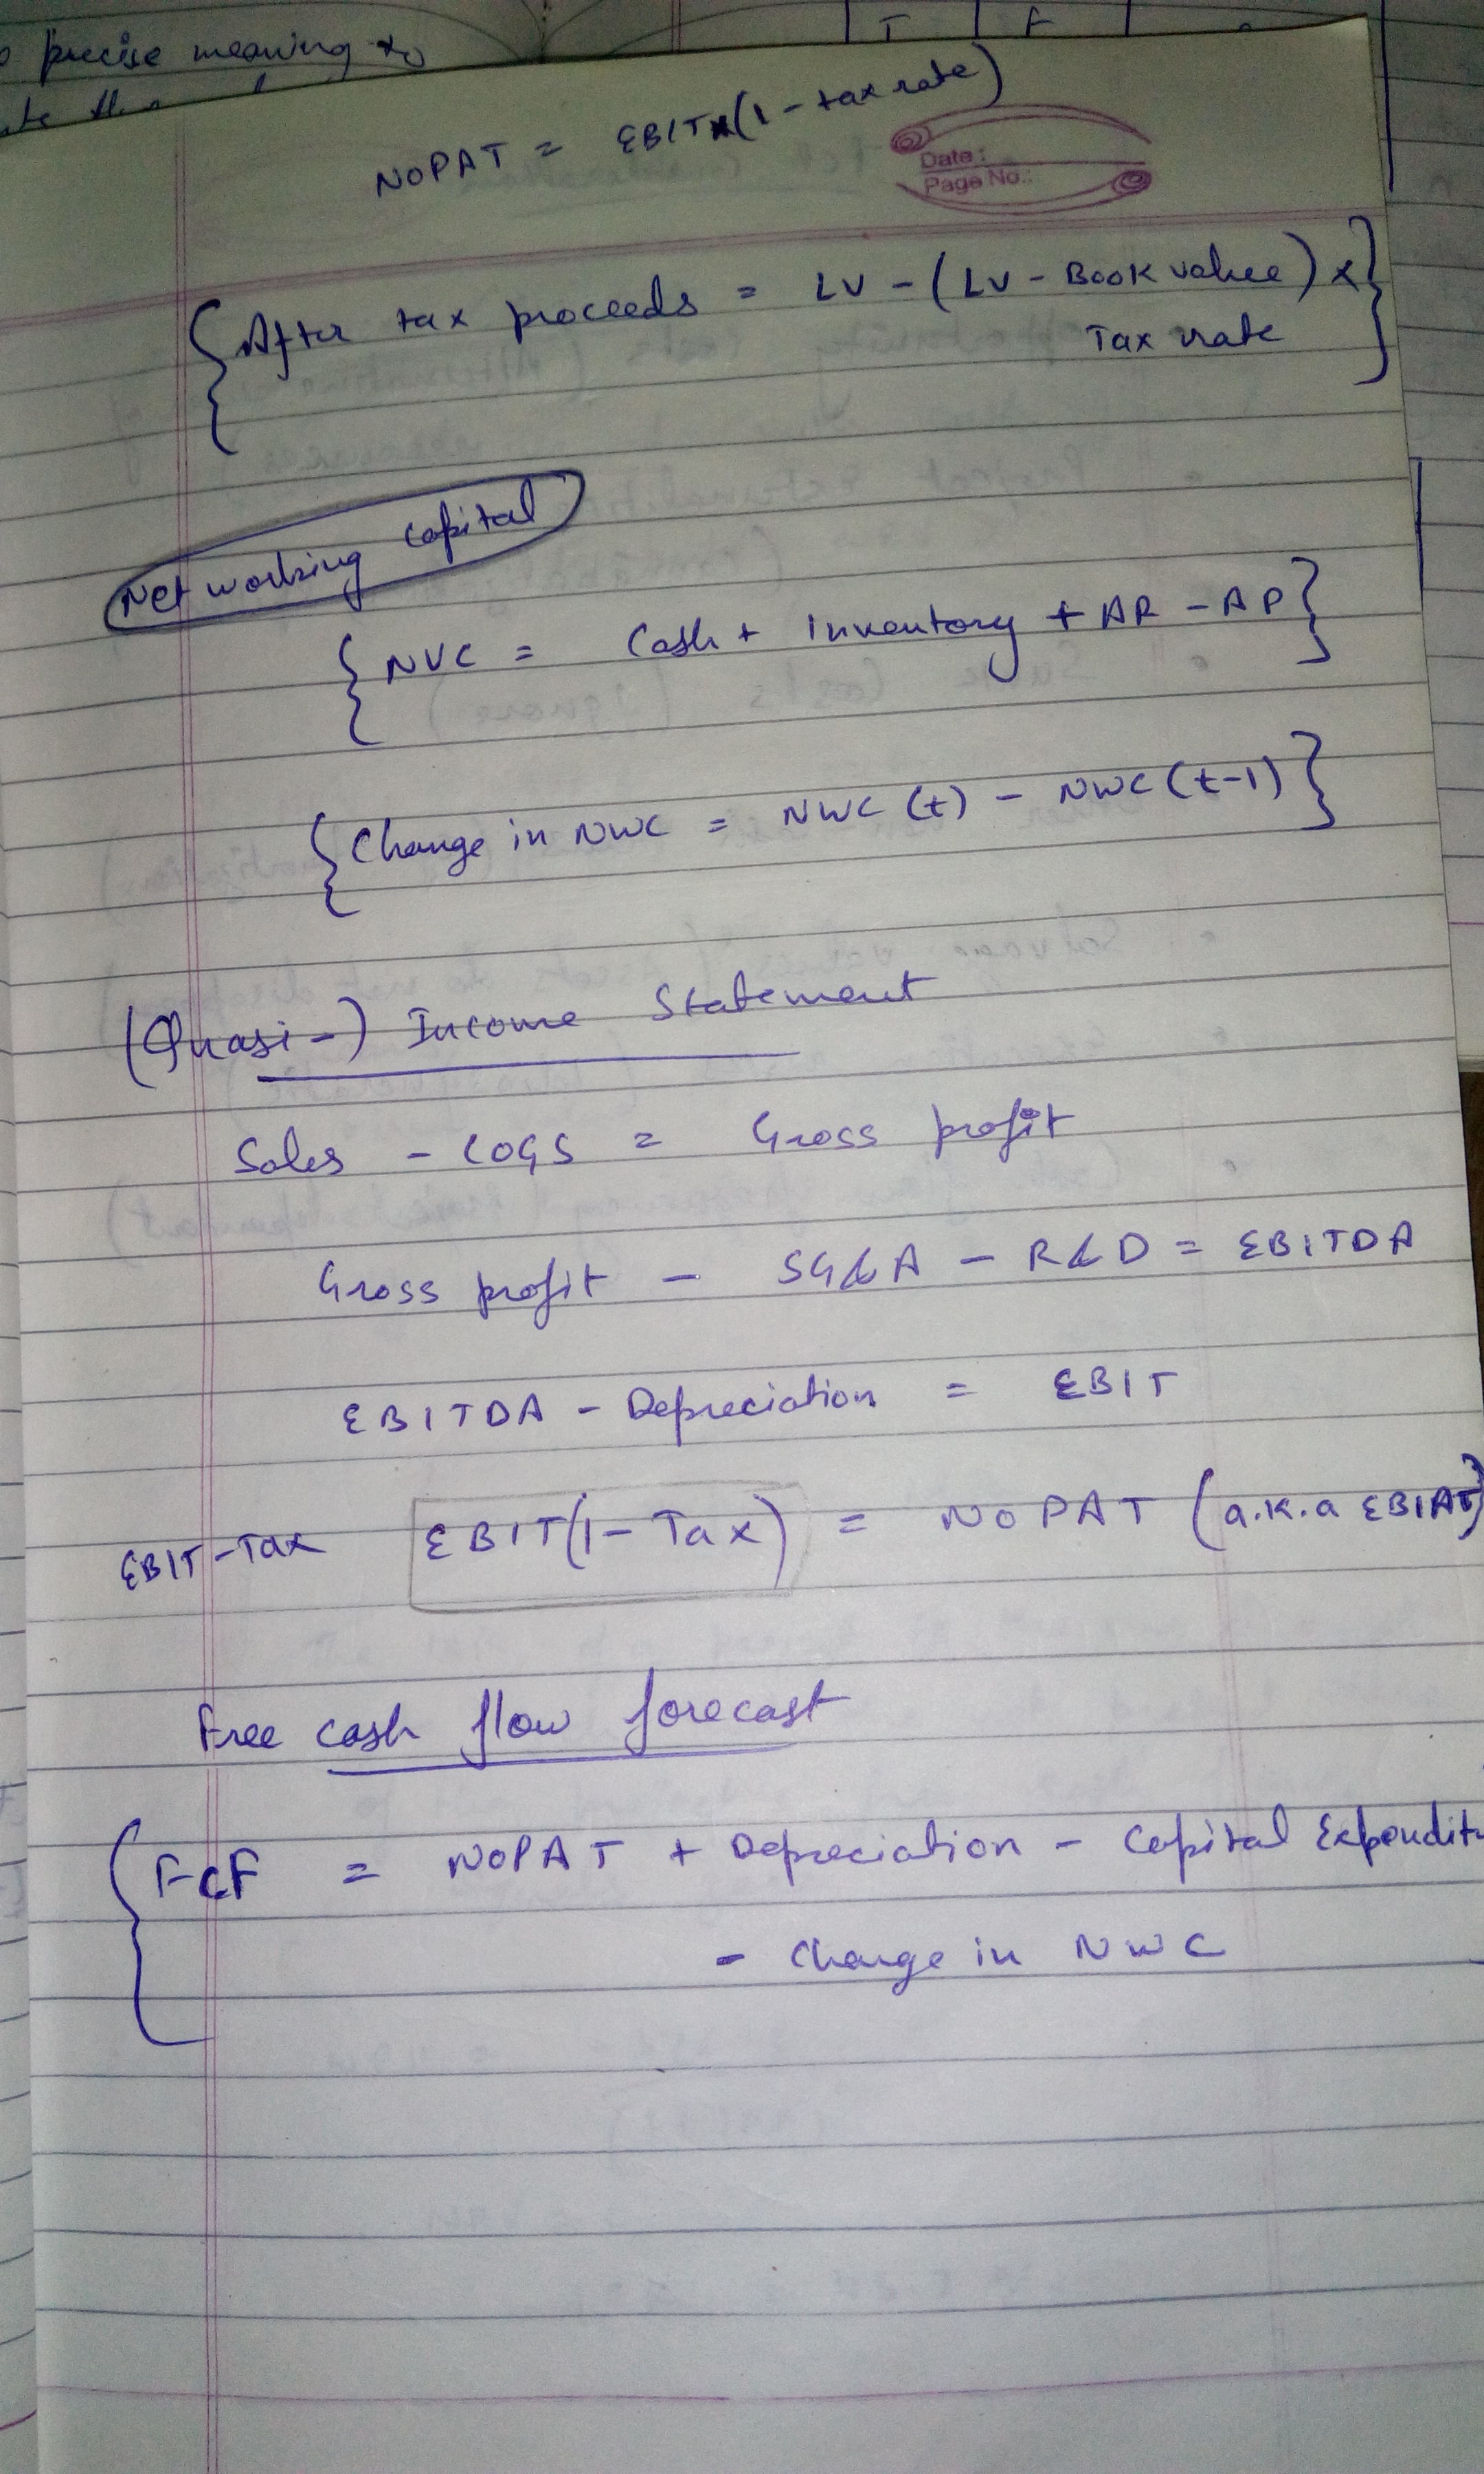 precise meaning to
T F
NOPAT = EBIT x (1 - tax rate)
Date :
Page No.:
{After tax proceeds = LV - (LV - Book value) x
Tax rate}
Net working capital
{NVC = Cash + Inventory + AR - AP}
{Change in NWC = NWC (t) - NWC (t-1)}
(Quasi-) Income Statement
Sales - COGS = Gross profit
Gross profit - SG&A - R&D = EBITDA
EBITDA - Depreciation = EBIT
EBIT-Tax EBIT(1- Tax) = NOPAT (a.k.a EBIAT)
Free cash flow forecast
{FCF = NOPAT + Depreciation - Capital Expendit
- Change in NWC